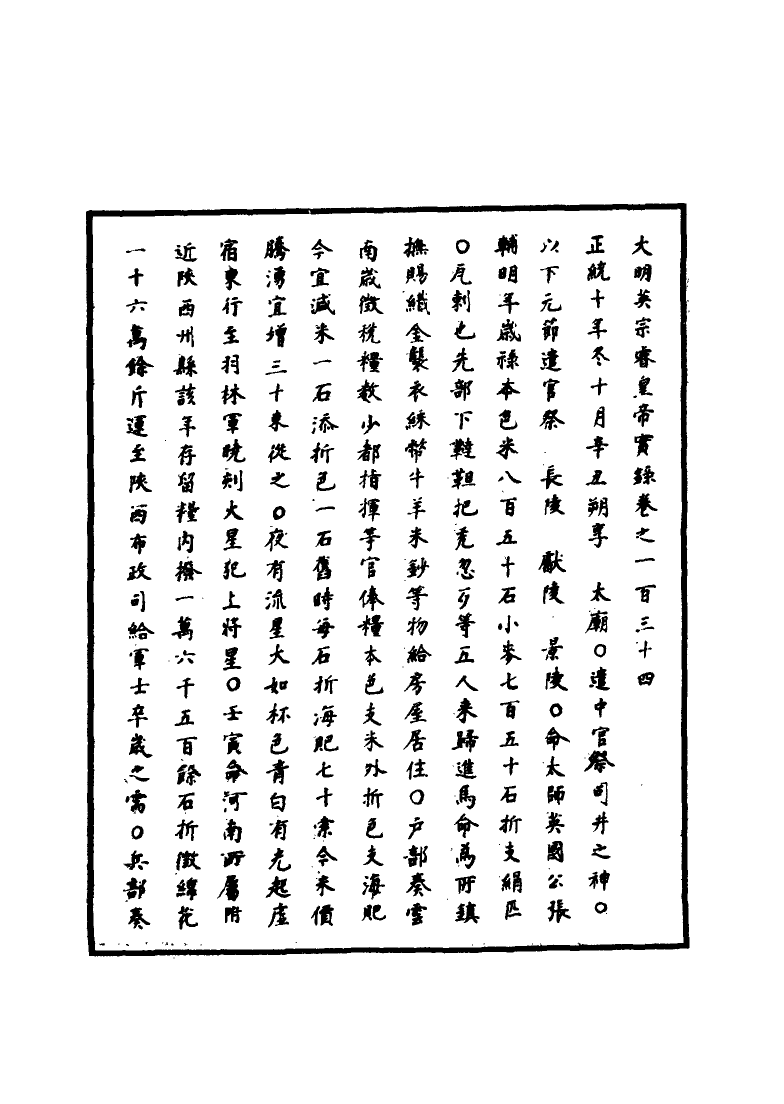 大明英宗睿皇帝實錄卷之一百三十四
正統十年冬十月辛丑朔享　太廟○遣中官祭司井之神○
以下元節遣官祭　長陵　獻陵　景陵○命太師英國公張
輔明年歲祿本色米八百五十石小麥七百五十石折支絹匹
○瓦剌也先部下韃靼把禿忽歹等五人來歸進馬命爲所鎮
撫賜織金襲衣綵幣牛羊米鈔等物給房屋居住○戶部奏雲
南歲徵稅糧數少都指揮等官俸糧本色支米外折色支海肥
今宜減米一石添折色一石舊時每石折海肥七十索今米價
騰湧宜增三十束從之○夜有流星大如杯色青白有光起虛
宿東行至羽林軍曉刻火星犯上將星○壬寅命河南所屬附
近陝西州縣該年存留糧內撥一萬六千五百餘石折徵綿花
一十六萬餘斤運至陝西布政司給軍士卒歲之需○兵部奏